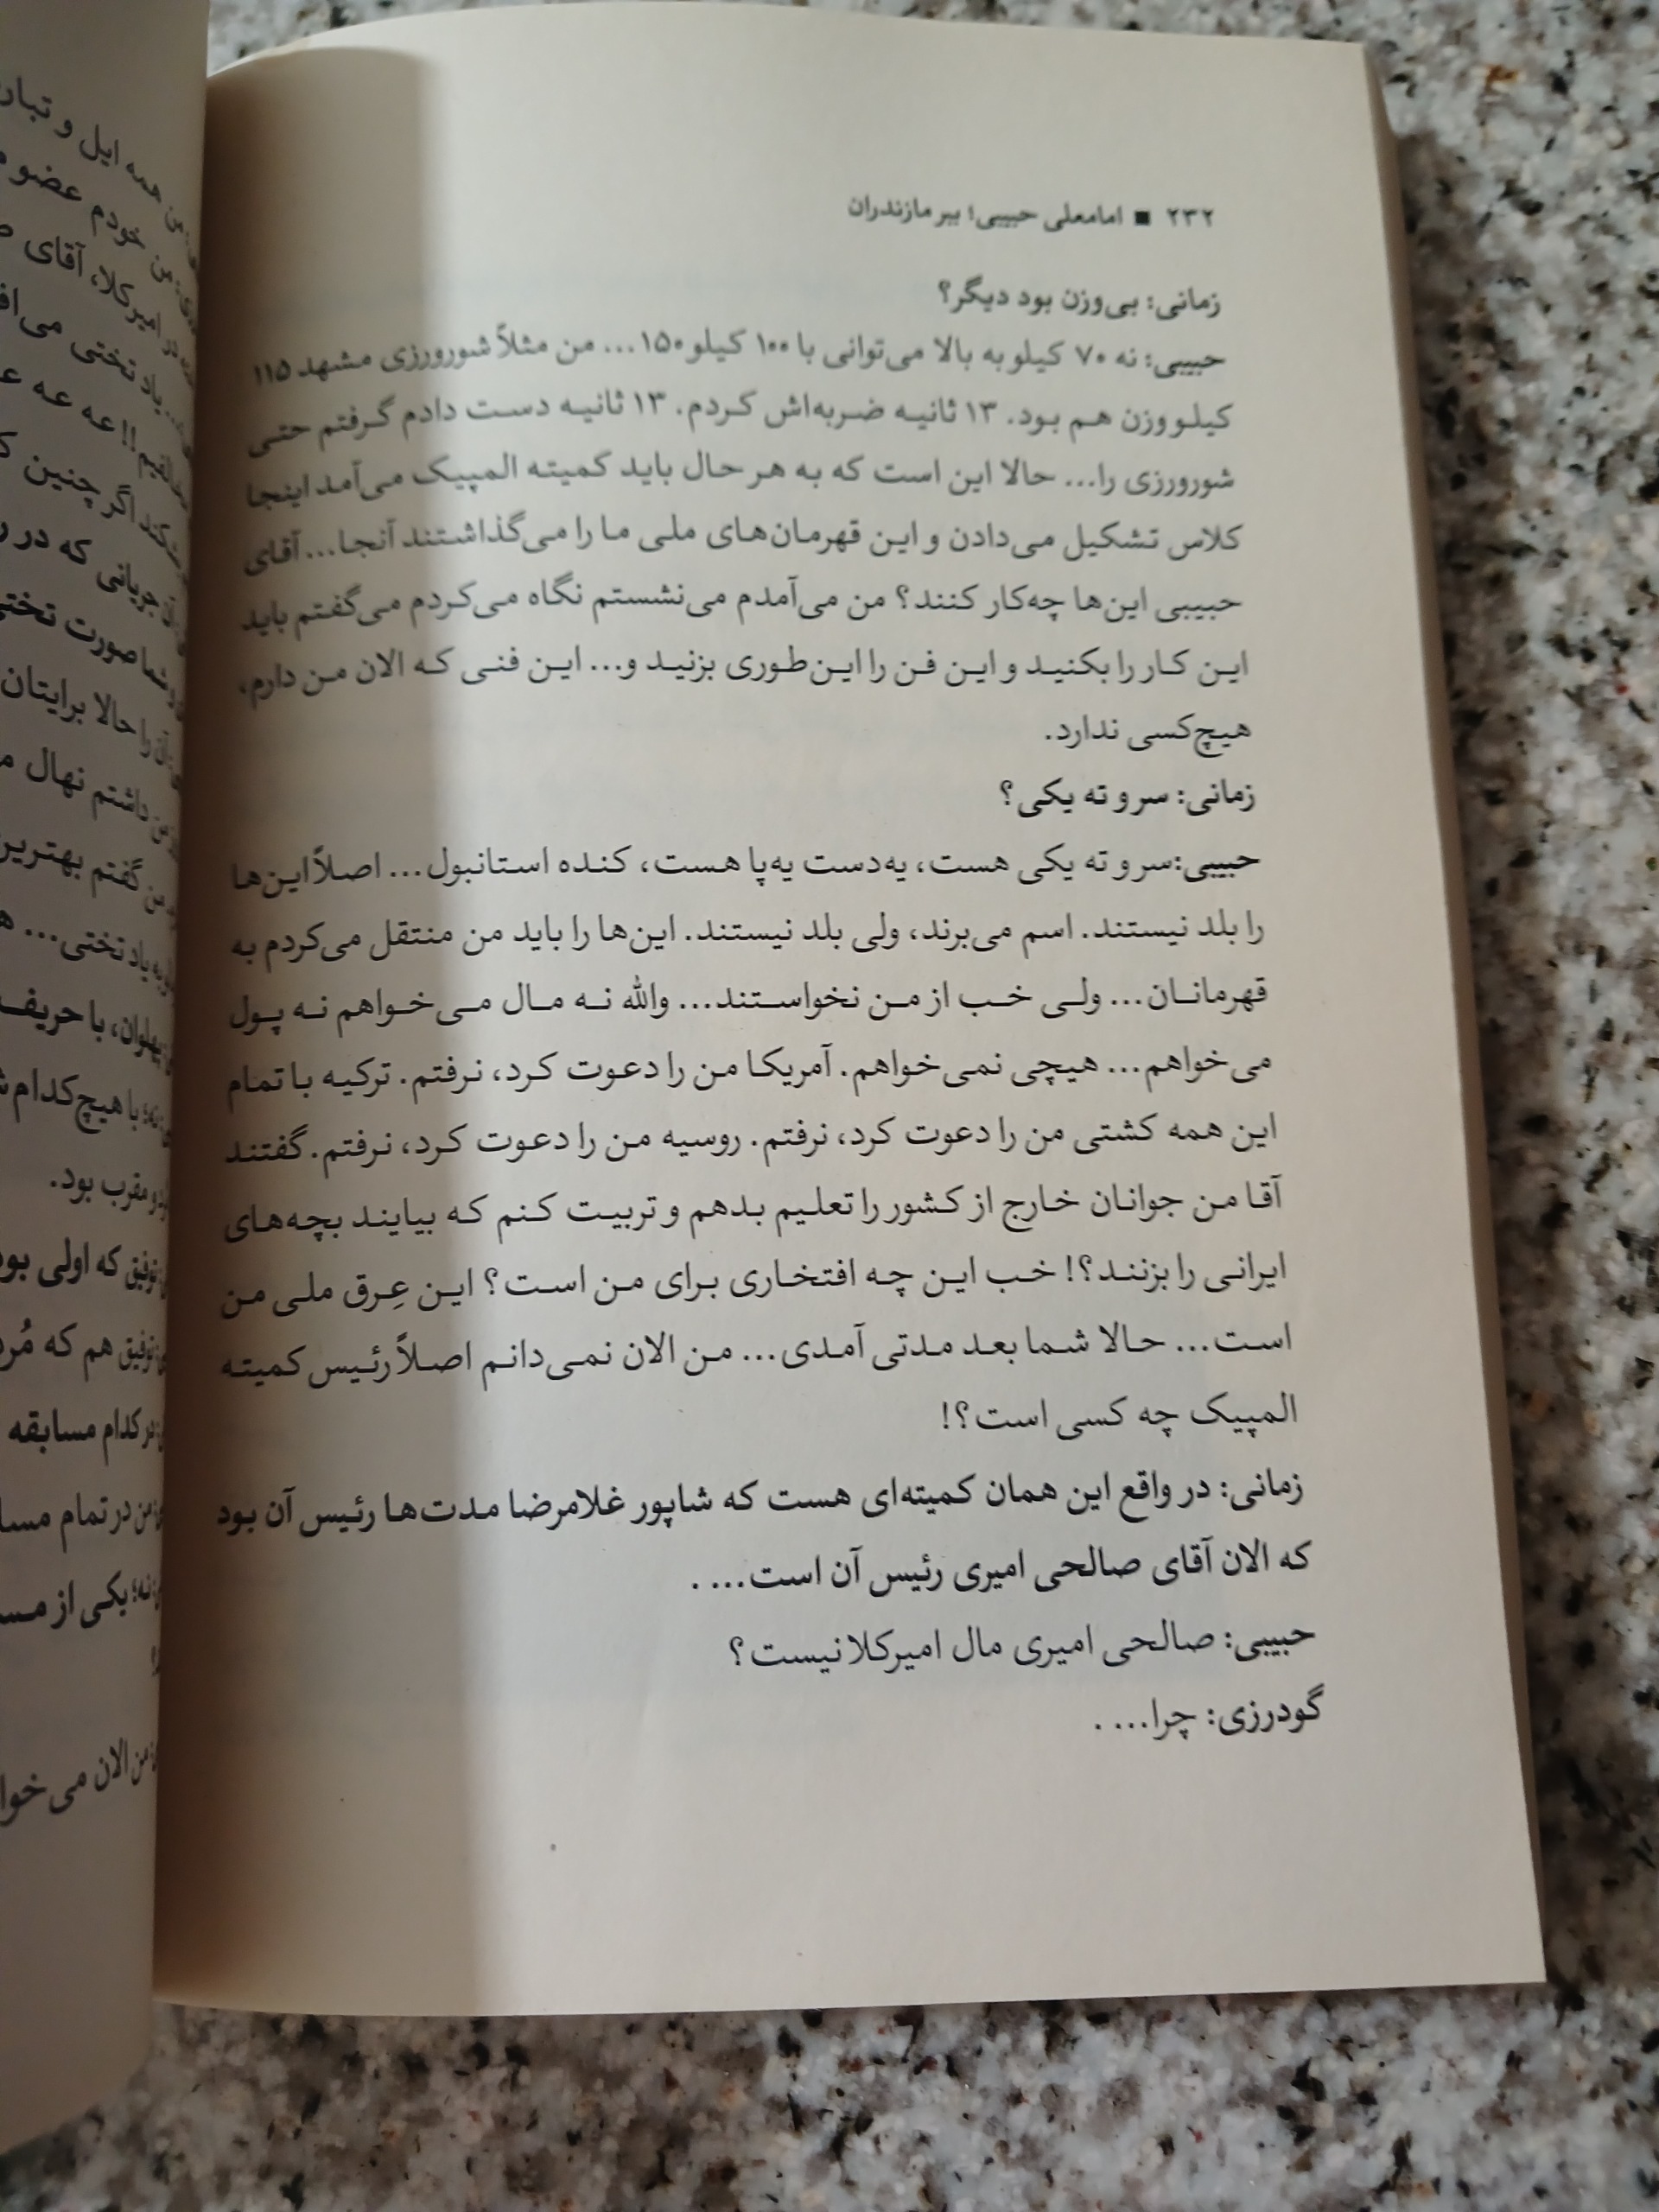 ۲۳۲ ■ امامعلی حبیبی؛ ببر مازندران
زمانی: بی‌وزن بود دیگر؟
حبیبی: نه ۷۰ کیلو به بالا می‌توانی با ۱۰۰ کیلو ۱۵۰... من مثلاً شورورزی مشهد ۱۱۵
کیلو وزن هم بود. ۱۳ ثانیه ضربه‌اش کردم. ۱۳ ثانیه دست دادم گرفتم حتی
شورورزی را... حالا این است که به هر حال باید کمیته المپیک می‌آمد اینجا
کلاس تشکیل می‌دادن و این قهرمان‌های ملی ما را می‌گذاشتند آنجا... آقای
حبیبی این‌ها چه‌کار کنند؟ من می‌آمدم می‌نشستم نگاه می‌کردم می‌گفتم باید
این کار را بکنید و این فن را این‌طوری بزنید و... این فنی که الان من دارم،
هیچ‌کسی ندارد.
زمانی: سر و ته یکی؟
حبیبی:سر و ته یکی هست، یه‌دست یه‌پا هست، کنده استانبول... اصلاً این‌ها
را بلد نیستند. اسم می‌برند، ولی بلد نیستند. این‌ها را باید من منتقل می‌کردم به
قهرمانان... ولی خب از من نخواستند... والله نه مال می‌خواهم نه پول
می‌خواهم... هیچی نمی‌خواهم. آمریکا من را دعوت کرد، نرفتم. ترکیه با تمام
این همه کشتی من را دعوت کرد، نرفتم. روسیه من را دعوت کرد، نرفتم. گفتند
آقا من جوانان خارج از کشور را تعلیم بدهم و تربیت کنم که بیایند بچه‌های
ایرانی را بزنند؟! خب این چه افتخاری برای من است؟ این عِرق ملی من
است... حالا شما بعد مدتی آمدی... من الان نمی‌دانم اصلاً رئیس کمیته
المپیک چه کسی است؟!
زمانی: در واقع این همان کمیته‌ای هست که شاپور غلامرضا مدت‌ها رئیس آن بود
که الان آقای صالحی امیری رئیس آن است... .
حبیبی: صالحی امیری مال امیرکلا نیست؟
گودرزی: چرا... .
همه ایل و تبار
من خودم عضو
امیرکلا، آقای
یاد تختی می‌
!! عه عه
اگر چنین
جریانی که در
شما صورت تختی
را حالا برایتان
داشتم نهال
من گفتم بهترین
به یاد تختی...
پهلوان، با حریف
با هیچ‌کدام
و مقرب بود.
توفیق که اولی
توفیق هم که مُرد
در کدام مسابقه
من در تمام
نه؛ یکی از
من الان می‌